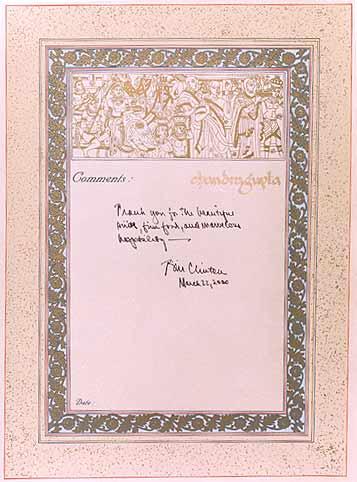 Comments:
chandragupta
Thank you for the beautiful
fine food, and marvelous
hospitality —
Bill Clinton
March 22, 2000
Date: